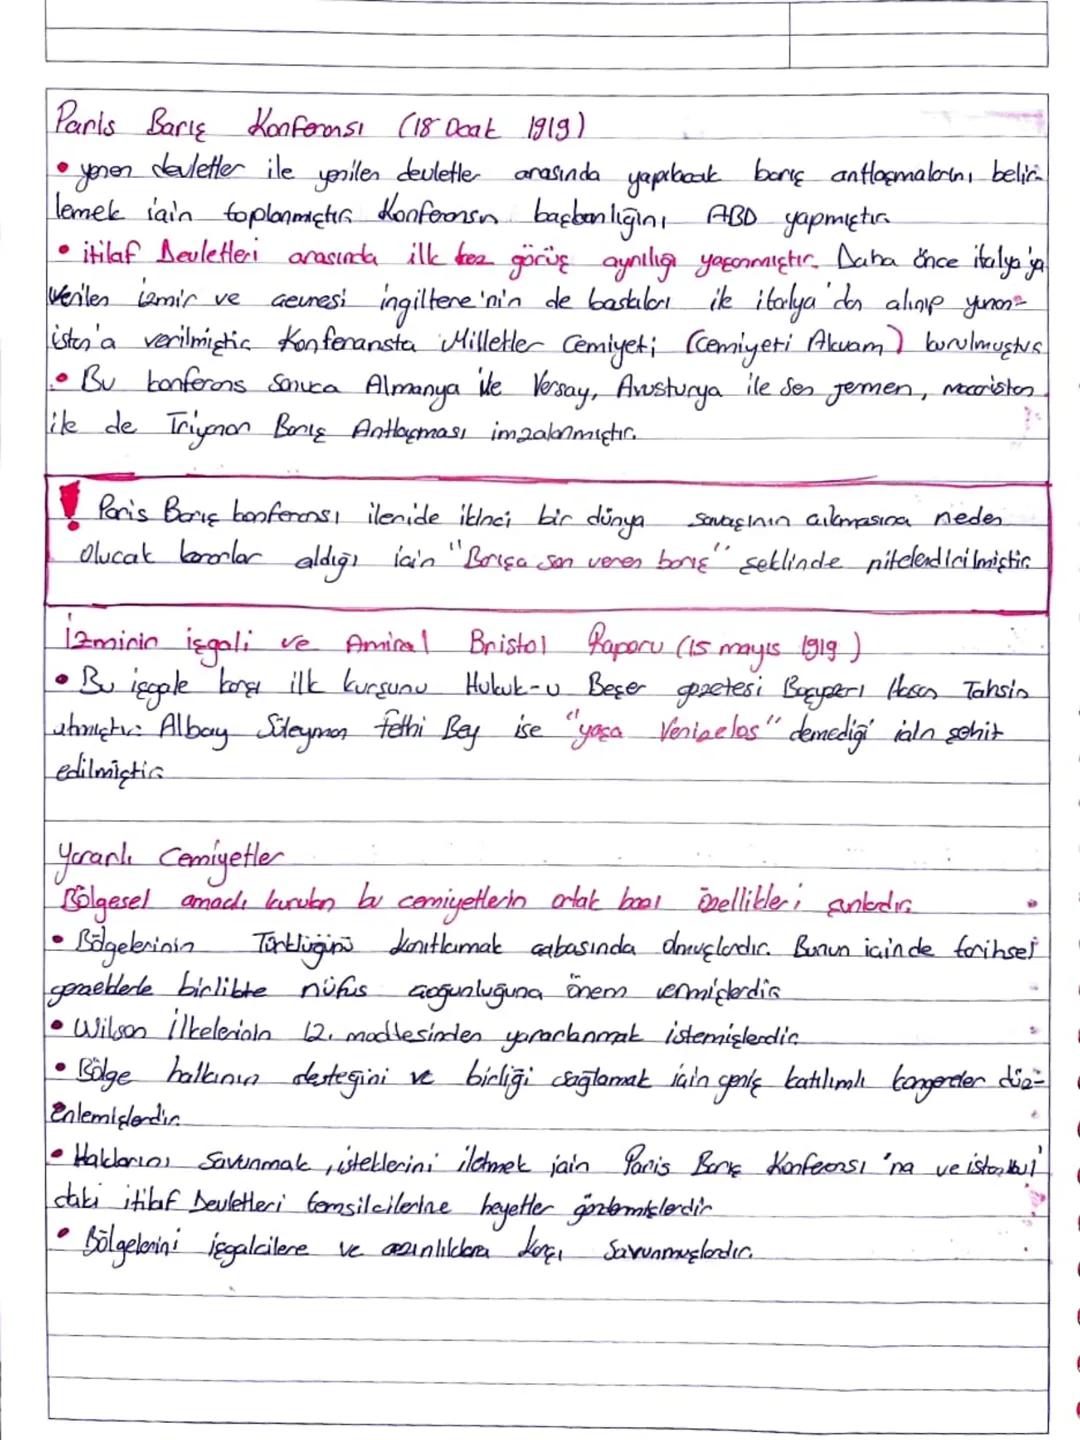 Paris Barış Konferansı (18 Ocak 1919)
• yenen devletler ile yenilen devletler arasında yapılacak barış antlaşmalarını belir-
lemek için toplanmıştır. Konferansın başkanlığını ABD yapmıştır.
• itilaf Devletleri arasında ilk kez görüş ayrılığı yaşanmıştır. Daha önce italya'ya
verilen izmir ve çevresi ingiltere'nin de baskıları ile italya'dan alınıp yunan-
istan'a verilmiştir. Konferansta Milletler Cemiyeti (Cemiyeti Akvam) kurulmuştur.
• Bu konferans sonuca Almanya ile Versay, Avusturya ile Sen Jermen, macaristan
ile de Triyanon Barış Antlaşması imzalanmıştır.
! Paris Barış konferansı ileride ikinci bir dünya savaşının çıkmasına neden
olucak kararlar aldığı için "Barışa son veren barış" şeklinde nitelendirilmiştir.
İzmirin işgali ve Amiral Bristol Raporu (15 mayıs 1919)
• Bu işgale karşı ilk kurşunu Hukuk-u Beşer gazetesi Başyazarı Hasan Tahsin
atmıştır. Albay Süleyman Fethi Bey ise "yaşa Venizelos" demediği için şehit
edilmiştir.
Yararlı Cemiyetler
Bölgesel amaçlı kurulan bu cemiyetlerin ortak bazı özellikleri şunlardır.
• Bölgelerinin Türklüğünü kanıtlamak çabasında olmuşlardır. Bunun içinde tarihsel
gerçeklerle birlikte nüfus çoğunluğuna önem vermişlerdir.
• Wilson İlkelerinin 12. maddesinden yararlanmak istemişlerdir.
• Bölge halkının desteğini ve birliği sağlamak için geniş katılımlı kongreler düz-
enlemişlerdir.
• Haklarını savunmak, isteklerini iletmek için Paris Barış Konferansı'na ve istanbul'
daki itilaf Devletleri temsilcilerine heyetler göndermişlerdir.
• Bölgelerini işgalcilere ve azınlıklara karşı savunmuşlardır.